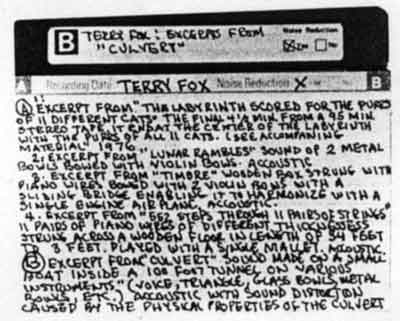 B TERRY FOX: EXCERPTS FROM
"CULVERT"
Noise Reduction
On No
A Recording Date TERRY FOX Noise Reduction X B
1.
A EXCERPT FROM "THE LABYRINTH SCORED FOR THE PURRS
OF 11 DIFFERENT CATS" THE FINAL 4½ MIN FROM A 95 MIN
STEREO TAPE. IT ENDS AT THE CENTER OF THE LABYRINTH
WITH THE PURRS OF ALL 11 CATS. (SEE ACCOMPANING
MATERIAL) 1976
2. EXCERPT FROM "LUNAR RAMBLES" SOUND OF 2 METAL
BOWLS BOWED WITH VIOLIN BOWS. ACCOUSTIC
3. EXCERPT FROM "TIMBRE" WOODEN BOX STRUNG WITH
PIANO WIRES BOWED WITH 2 VIOLIN BOWS WITH A
SLIDING BRIDGE ENABLING IT TO HARMONIZE WITH A
SINGLE ENGINE AIRPLANE. ACCOUSTIC.
4. EXCERPT FROM "552 STEPS THROUGH 11 PAIRS OF STRINGS"
11 PAIRS OF PIANO WIRES OF DIFFERENT THICKNESSES
STRUNG ACROSS A WOODEN FLOOR IN LENGTH OF 34 FEET
TO 3 FEET PLAYED WITH A SINGLE MALLET. ACOUSTIC
B EXCERPT FROM "CULVERT" SOUND MADE ON A SMALL
BOAT INSIDE A 100 FOOT TUNNEL ON VARIOUS
INSTRUMENTS (VOICE, TRIANGLE, GLASS BOWLS, METAL
BOWLS, ETC.) ACCOUSTIC WITH SOUND DISTORTION
CAUSED BY THE PHYSICAL PROPERTIES OF THE CULVERT